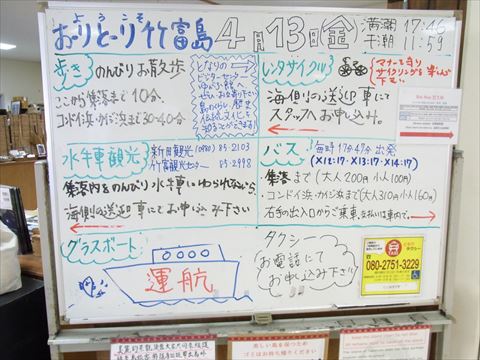 おーりとーり竹富島
ようこそ
4月13日(金)
満潮 17:46
干潮 11:59
歩き
のんびりお散歩
ここから集落まで10分、
コンドイ浜・カイジ浜まで30~40分
となりの
ビジターセンター
ゆがふ館へも
ぜひお立寄り下さい
島のくらし歴史
伝統文化に
ふれることができます!
レンタサイクル
マナーを守り
サイクリングを楽しんで
下さい
海側の送迎車にて
スタッフへお申し込み。
水牛車観光
新田観光 (0980)85-2103
竹富観光センター 85-2998
集落内をのんびり水牛車にゆられながら。
海側の送迎車にてお申し込み下さい
バス
毎時17分・47分 出発
(×12:17・×13:17・×14:17)
集落まで(大人200円 小人100円)
・コンドイ浜・カイジ浜まで(大人310円 小人160円)
右手の出入口からご乗車、お支払いは車内で。
グラスボート
運航
タクシー
お電話にて
お申し込み下さい!!
タクシー
080-2751-3229